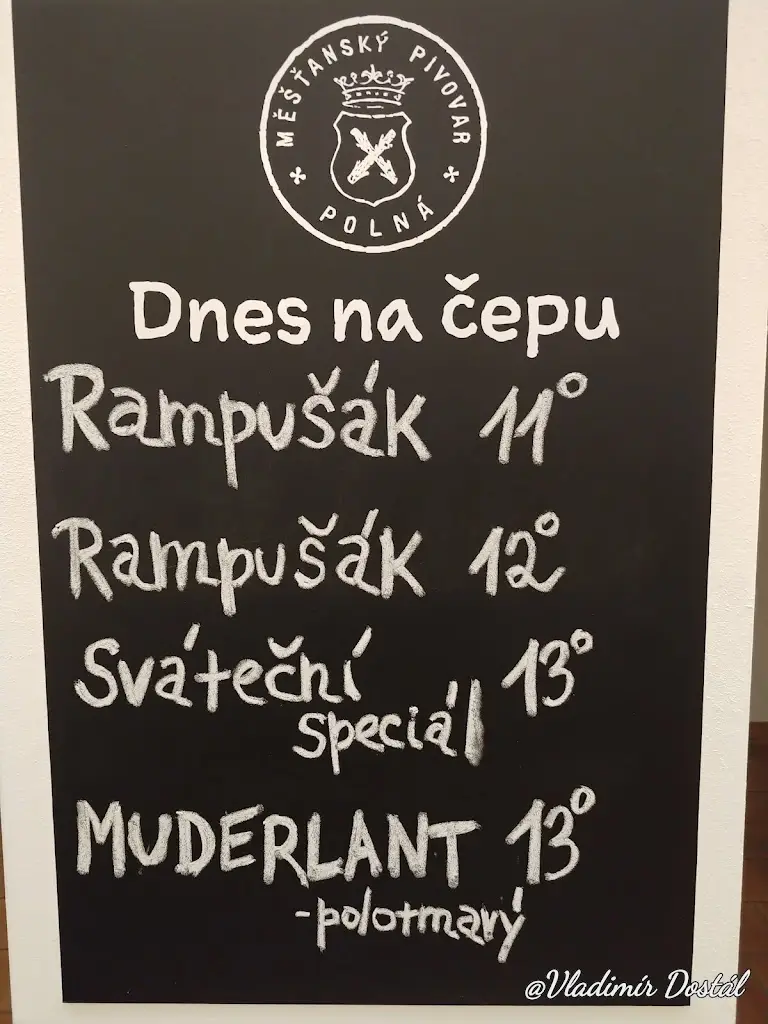 MĚŠŤANSKÝ PIVOVAR
POLNÁ
Dnes na čepu
Rampušák 11°
Rampušák 12°
Sváteční 13°
speciál
MUDERLANT 13°
-polotmavý
@Vladimír Dostál